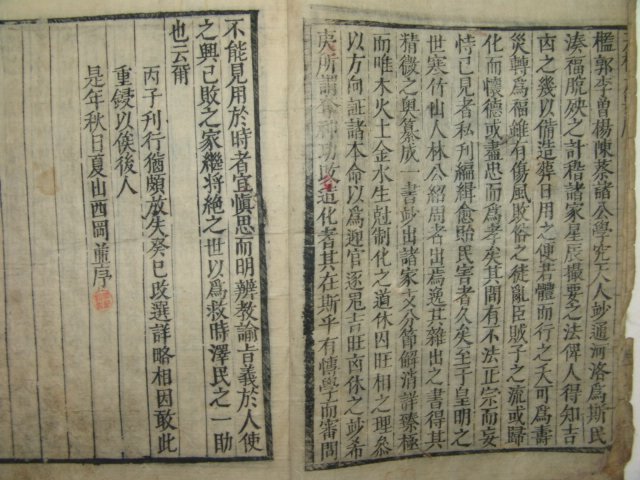 檻郭李曾楊陳蔡諸公學究天人妙通河洛為斯民
湊福脫殃之計稽諸家星辰撮要之法俾人得知吉
凶之幾以備造葬日用之便若體而行之夭可為壽
災轉為福雖有傷風敗俗之徒亂臣賊子之流或歸
化而懷德或盡忠而為孝矣其間有不法正宗而妄
恃己見者私刊編緝愈貽民害者久矣至于皇明之
世寒竹山人林公紹周者出焉逸其雜出之書得其
精微之奧纂成一書妙出諸家支分節解消詳臻極
而唯木火土金水生尅制化之道休囚旺相之理叅
以方向証諸本命以為迎官逐鬼吉旺凶休之妙希
夷所謂 功 造化者其在斯乎有博學而審問
不能見用於時者宜愼思而明辨教諭吉義於人使
之興已敗之家繼將絕之世以為救時澤民之一助
也云爾
丙子刊行猶頗放失癸巳改選詳略相因敢此
重鋟以俟後人
是年秋日夏山西岡董序